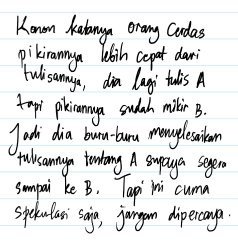 Konon katanya orang cerdas
pikirannya lebih cepat dari
tulisannya, dia lagi tulis A
tapi pikirannya sudah mikir B.
Jadi dia buru-buru menyelesaikan
tulisannya tentang A supaya segera
sampai ke B. Tapi ini cuma
spekulasi saja, jangan dipercaya.